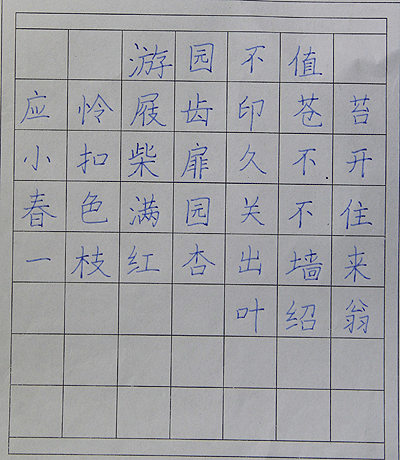 游园不值
应怜屐齿印苍苔
小扣柴扉久不开
春色满园关不住
一枝红杏出墙来
叶绍翁